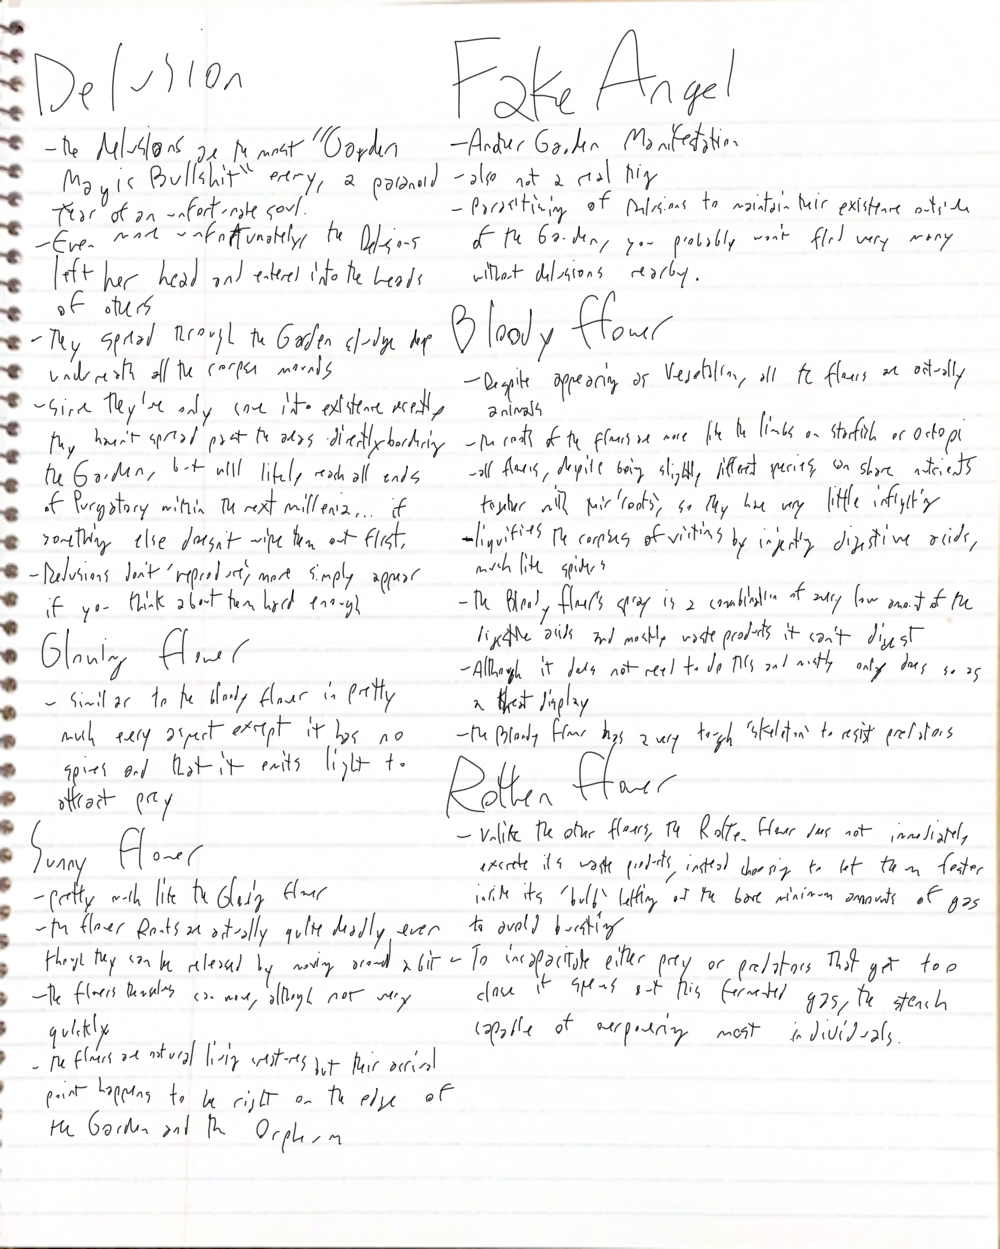 Delusion
- The delusions are the most "Garden
Magic Bullshit" enemy, a paranoid
fear of an unfortunate soul.
- Even more unfortunately, the Delusions
left her head and entered into the heads
of others
- They spread through the Garden sludge deep
underneath all the corpse mounds
- Since they've only come into existence recently
they haven't spread past the areas directly bordering
the Garden, but will likely reach all ends
of Purgatory within the next millenia... if
something else doesn't wipe them out first.
- Delusions don't 'reproduce', more simply appear
if you think about them hard enough
Glowing flower
- Similar to the bloody flower in pretty
much every aspect except it has no
spines and that it emits light to
attract prey
Sunny flower
- pretty much like the Glowing flower
- The flower Roots are actually quite deadly, even
though they can be released by moving around a bit
- The flowers themselves can move, although not very
quickly
- The flowers are natural living creatures but their arrival
point happens to be right on the edge of
the Garden and the
Fake Angel
- Another Garden Manifestation
- also not a real thing
- Parasitizing off Delusions to maintain their existence outside
of the Garden, you probably won't find very many
without delusions nearby.
Bloody flower
- Despite appearing as vegetation, all the flowers are actually
animals
- The roots of the flowers are more like the limbs on starfish or octopi
- all flowers, despite being slightly different species can share nutrients
together with their 'roots', so they have very little infighting
- liquifies the corpses of victims by injecting digestive acids,
much like spiders
- The Bloody flower's spray is a combination of a very low amount of the
digestive acids and mostly waste products it can't digest
- Although it does not need to do this and mostly only does so as
a threat display
- The Bloody flower has a very tough 'skeleton' to resist predators
Rotten flower
- Unlike the other flowers, the Rotten flower does not immediately
excrete its waste products, instead choosing to let them fester
inside its 'bulb' letting out the bare minimum amounts of gas
to avoid bursting
- To incapacitate either prey or predators that get too
close it spews out this fermented gas, the stench
capable of overpowering most individuals.